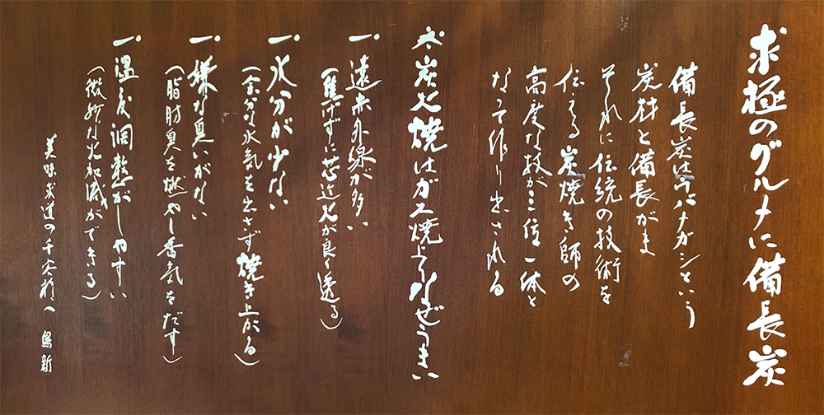 求極のグルメに備長炭
備長炭はウバメガシという
炭材と備長がま
それに伝統の技術を
伝える炭焼き師の
高度な技が三位一体と
なって作り出される
炭火焼はガス焼よりなぜうまい
一、遠赤外線が多い
(焦げずに芯迄火が良く透る)
一、水分が少ない
(余分な水気を出さず焼き上がる)
一、嫌な臭いがない
(脂肪臭を燃やし香気をだす)
一、温度調整がしやすい
(微妙な火加減ができる)
美味求道の
へ 鳥新